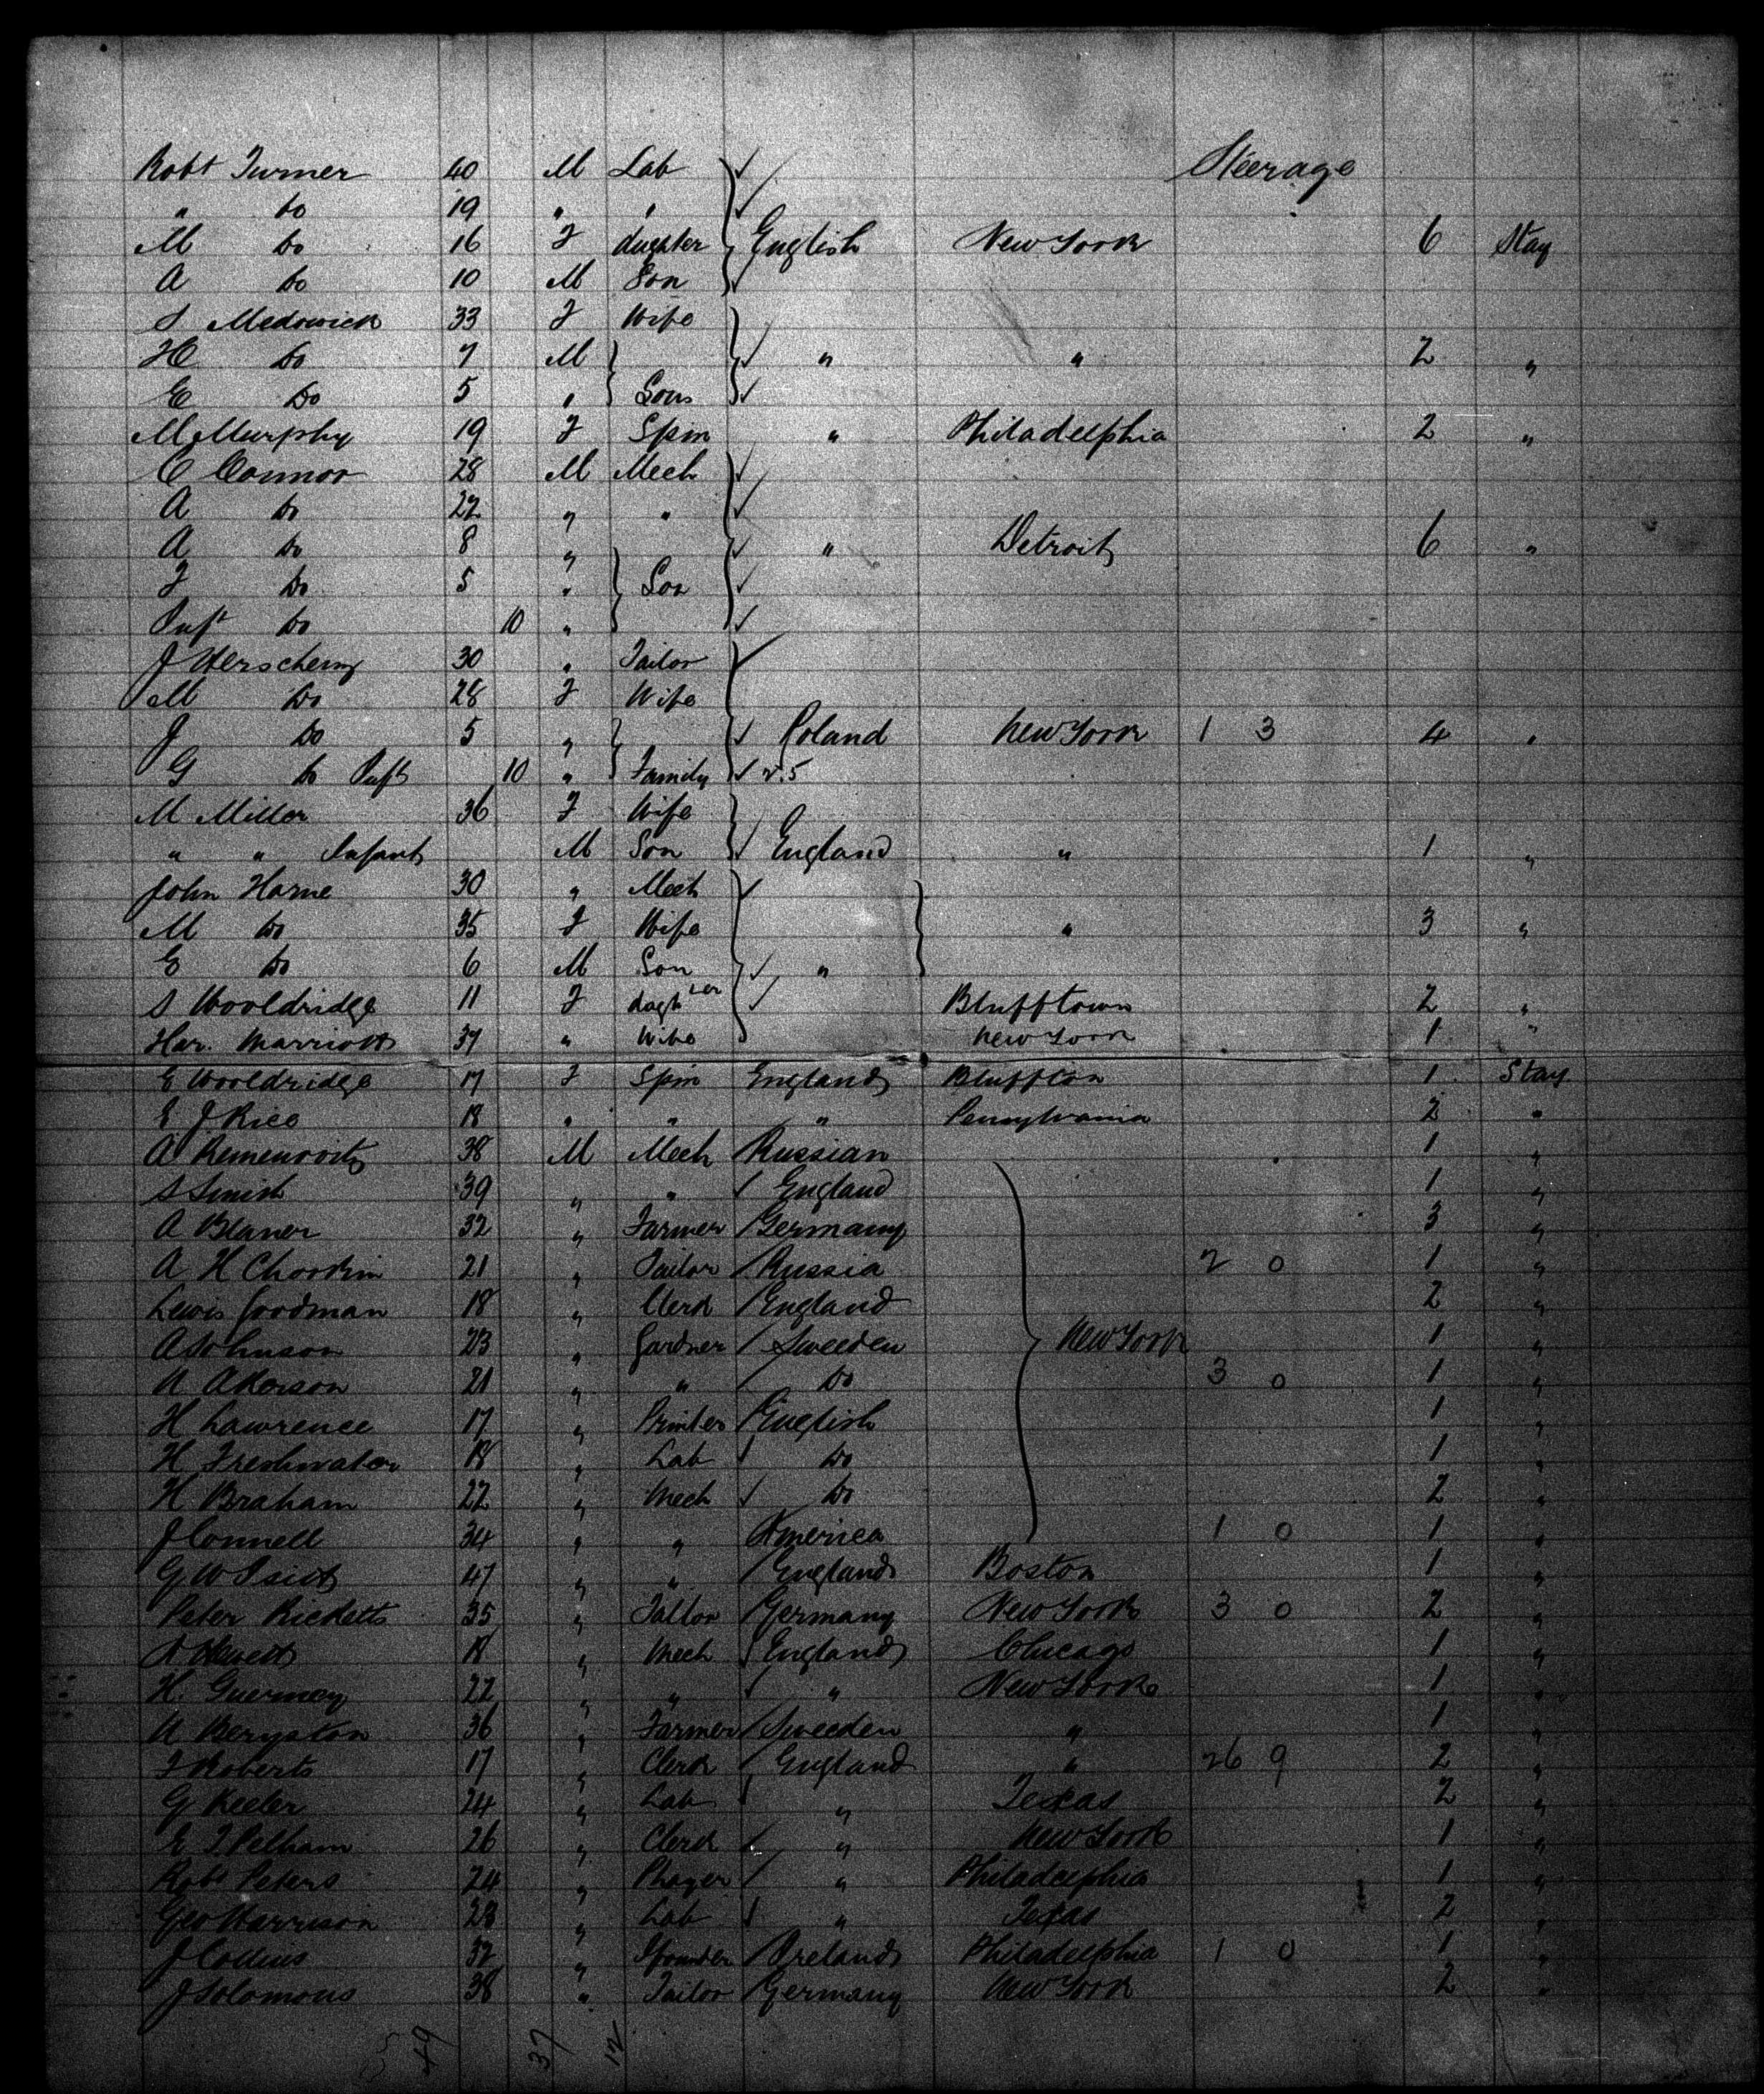 Robt Turner 40 M Lab Steerage
" Do 19 " "
M Do 16 F daughter English New York 6 Stay
A Do 10 M Son
S Medowick 33 F Wife
H Do 7 M " " 2 "
E Do 5 " Sons
M Murphy 19 F Spin " Philadelphia 2 "
C Connor 28 M Mech
A Do 22 " "
A Do 8 " " Detroit 6 "
F Do 5 " Son
Inft Do 10 "
J 30 " Tailor
M Do 28 F Wife
J Do 5 " Poland New York 1 3 4 "
G Do Inft 10 " Family
M Miller 36 F Wife
" " Infant M Son England " 1 "
John Horne 30 " Mech
M Do 35 F Wife " 3 "
E Do 6 M Son "
S Wooldridge 11 F daghter Blufftown 2 "
Har. Marriott 37 " Wife New York 1 "
E Wooldridge 17 F Spin England Bluffton 1 Stay
E J Rice 18 " " " Pennylvania 2 "
A 38 M Mech Russian 1 "
S 39 " " England 1 "
A Blaner 32 " Farmer Germany 3 "
A H 21 " Tailor Russia 2 0 1 "
Lewis Goodman 18 " Clerk England 2 "
A Johnson 23 " Gardner Sweeden New York 1 "
N Akerson 21 " " Do 3 0 1 "
H Lawrence 17 " Printer English 1 "
H Freshwater 18 " Lab Do 1 "
H Braham 22 " Mech Do 2 "
J Connell 34 " " America 1 0 1 "
G W 47 " " England Boston 1 "
Peter Ricketts 35 " Tailor Germany New York 3 0 2 "
18 " Mech England Chicago 1 "
H. Guermay 22 " " " New York 1 "
N Beryston 36 " Farmer Sweeden " 1 "
F Roberts 17 " Clerk England " 26 9 2 "
G Keeler 24 " Lab " Texas 2 "
E T Pelham 26 " Clerk " New York 1 "
Robt Peters 24 " " Philadelphia 1 "
Geo Harrison 28 " Lab " Texas 2 "
J Collins 32 " Ireland Philadelphia 1 0 1 "
J Solomons 38 " Tailor Germany New York 2 "
49 37 12